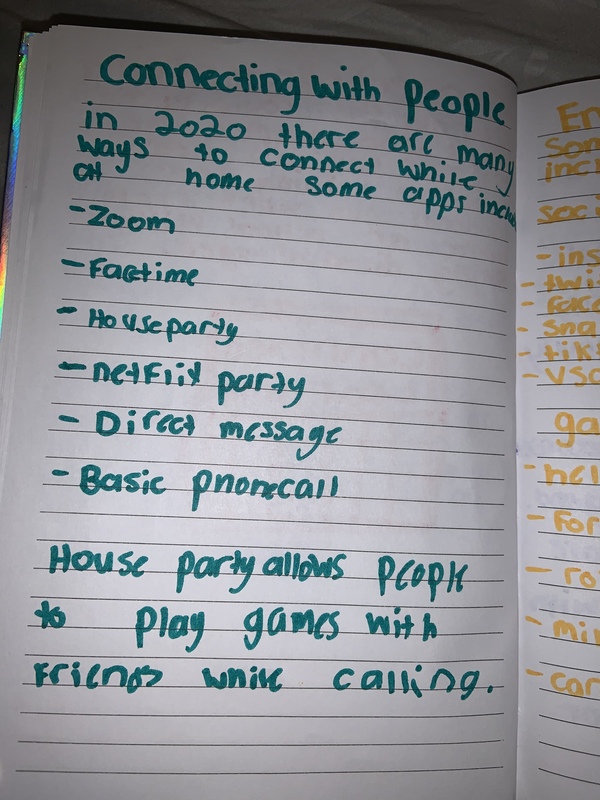 Connecting with people
in 2020 there are many
ways to connect while
at home some apps inclu
-Zoom
-Facetime
-Houseparty
-netflix party
-Direct message
-Basic phonecall
House party allows people
to play games with
friends while calling.
En
som
incl
soci
-ins
-twi
-face
-sna
-tik
-VSC
ga
-hel
-For
-ro
-min
-car